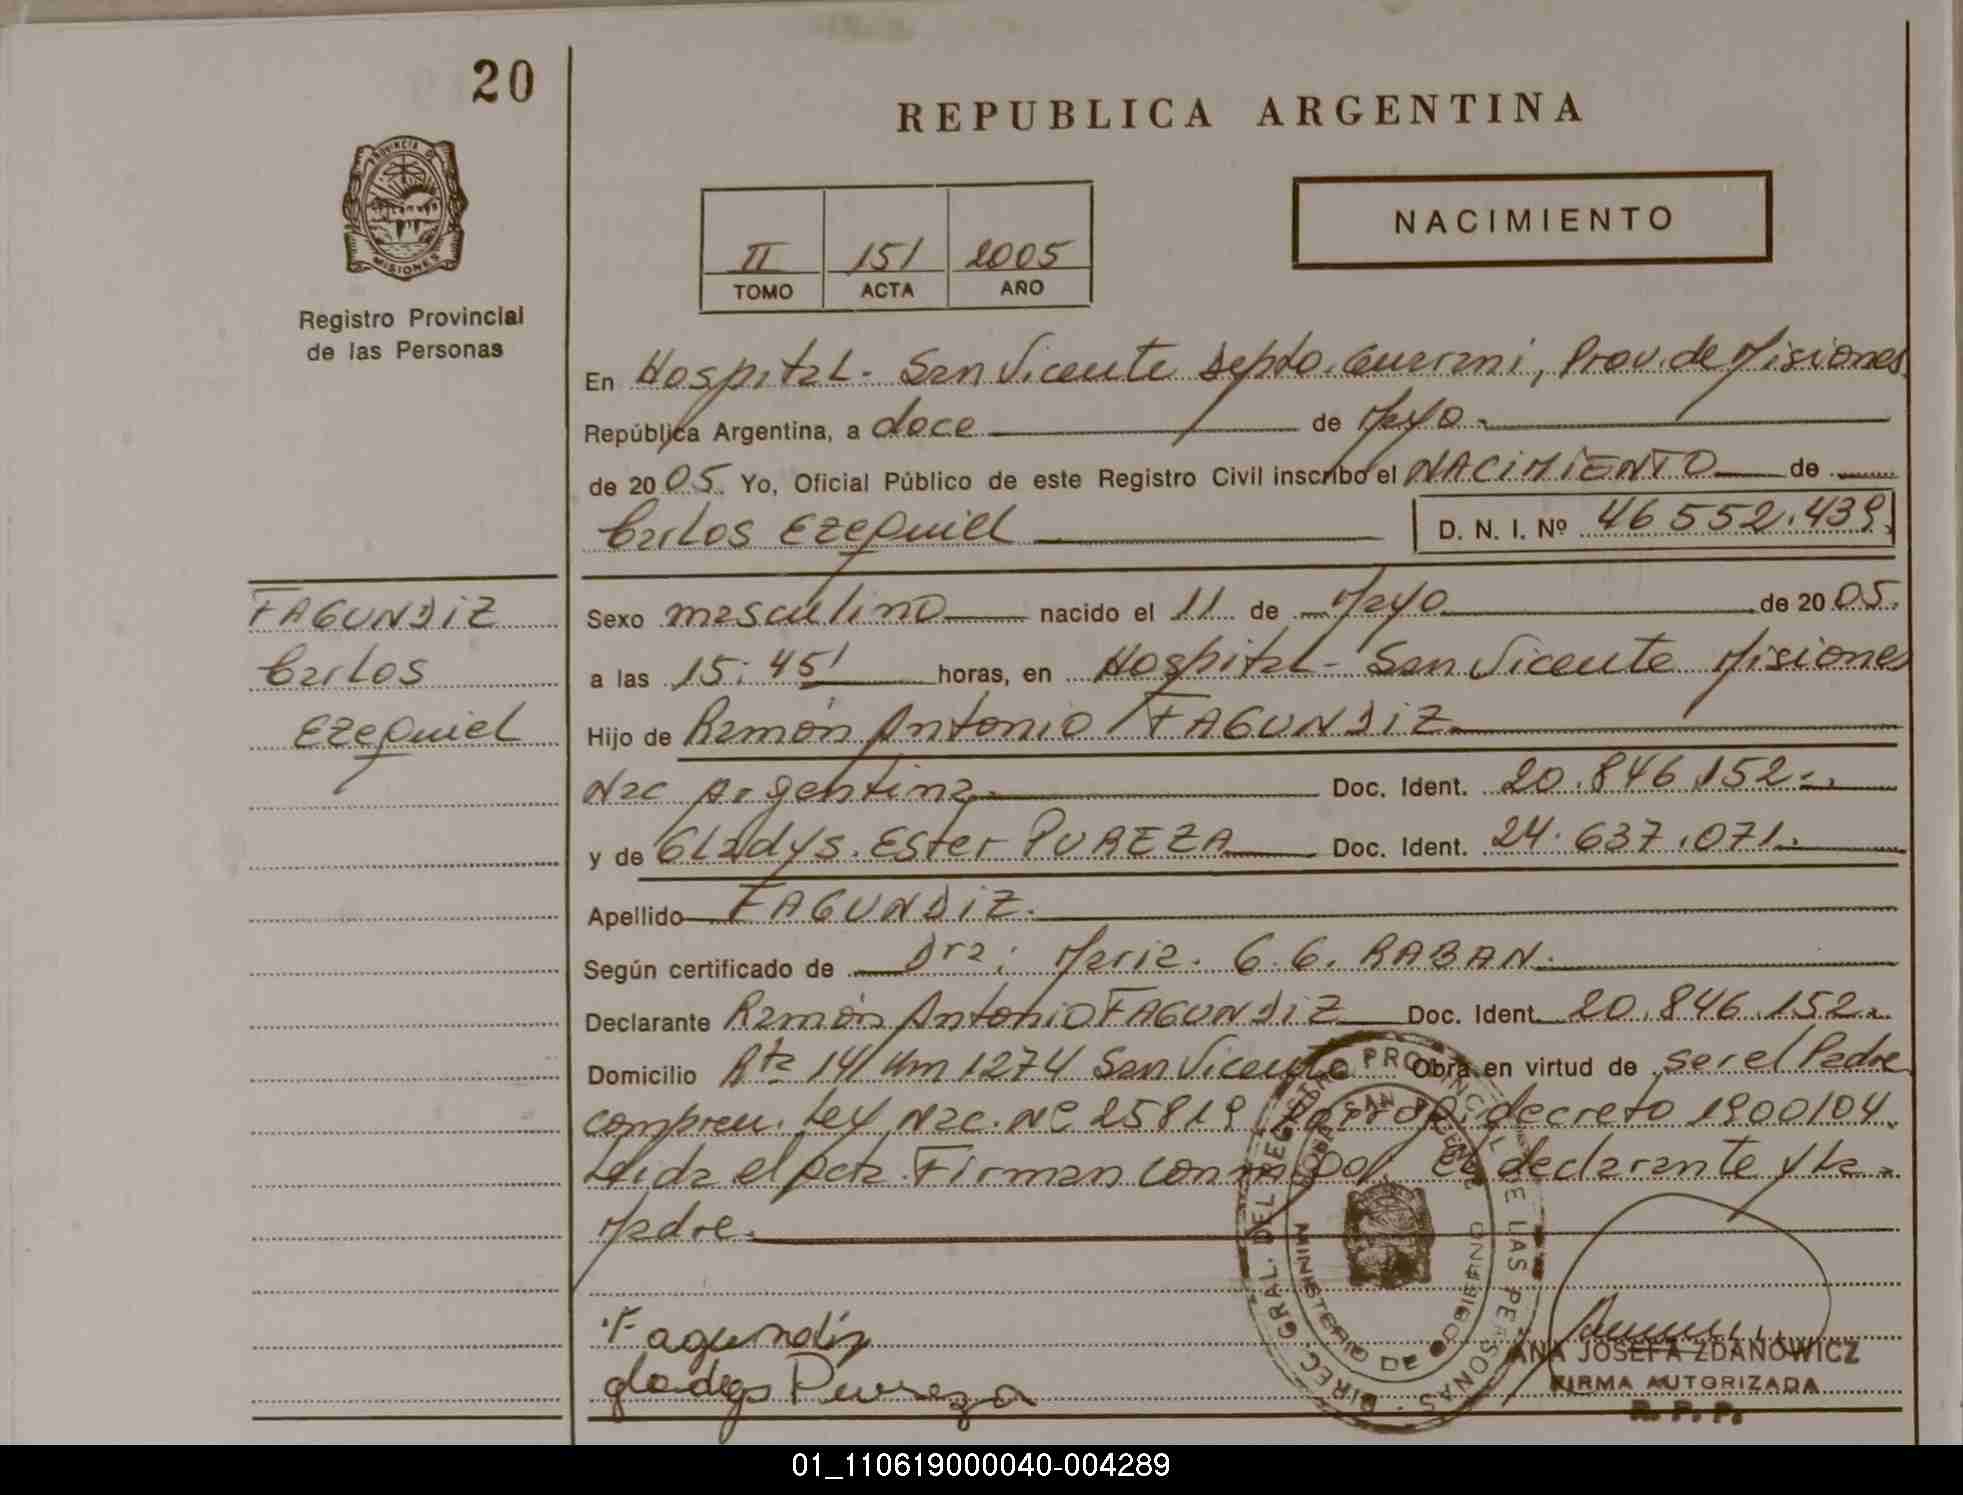 20
PROVINCIA DE
MISIONES
Registro Provincial
de las Personas
REPUBLICA ARGENTINA
II 151 2005
TOMO ACTA AÑO
NACIMIENTO
En Hospital - San Vicente Depto. Guarani, Prov. de Misiones
República Argentina, a doce de Mayo
de 2005. Yo, Oficial Público de este Registro Civil inscribo el NACIMIENTO de
Carlos Ezequiel D. N. I. Nº 46 552.439
FAGUNDIZ
Carlos
Ezequiel
Sexo masculino nacido el 11 de Mayo de 2005.
a las 15:45' horas, en Hospital - San Vicente Misiones
Hijo de Ramón Antonio FAGUNDIZ
Nac Argentina Doc. Ident. 20.846.152
y de Gladys. Ester PUREZA Doc. Ident. 24.637.071
Apellido FAGUNDIZ.
Según certificado de Dra: Maria. G. G. RABAN.
Declarante Ramón Antonio FAGUNDIZ Doc. Ident. 20.846.152
Domicilio Rta 14 Km 1274 San Vicente Obra en virtud de ser el Padre
compren. Ley Nac. Nº 25819 decreto 1900/04.
Leida el acta. Firman conmigo, el declarante y la
Madre.
Fagundiz
gladys Pureza
DIREC. GRAL. DEL REGISTRO PROVINCIAL DE LAS PERSONAS
MINISTERIO DE GOBIERNO
SAN VICENTE
ANA JOSEFA ZDANOWICZ
FIRMA AUTORIZADA
R. P. P.
01_110619000040-004289